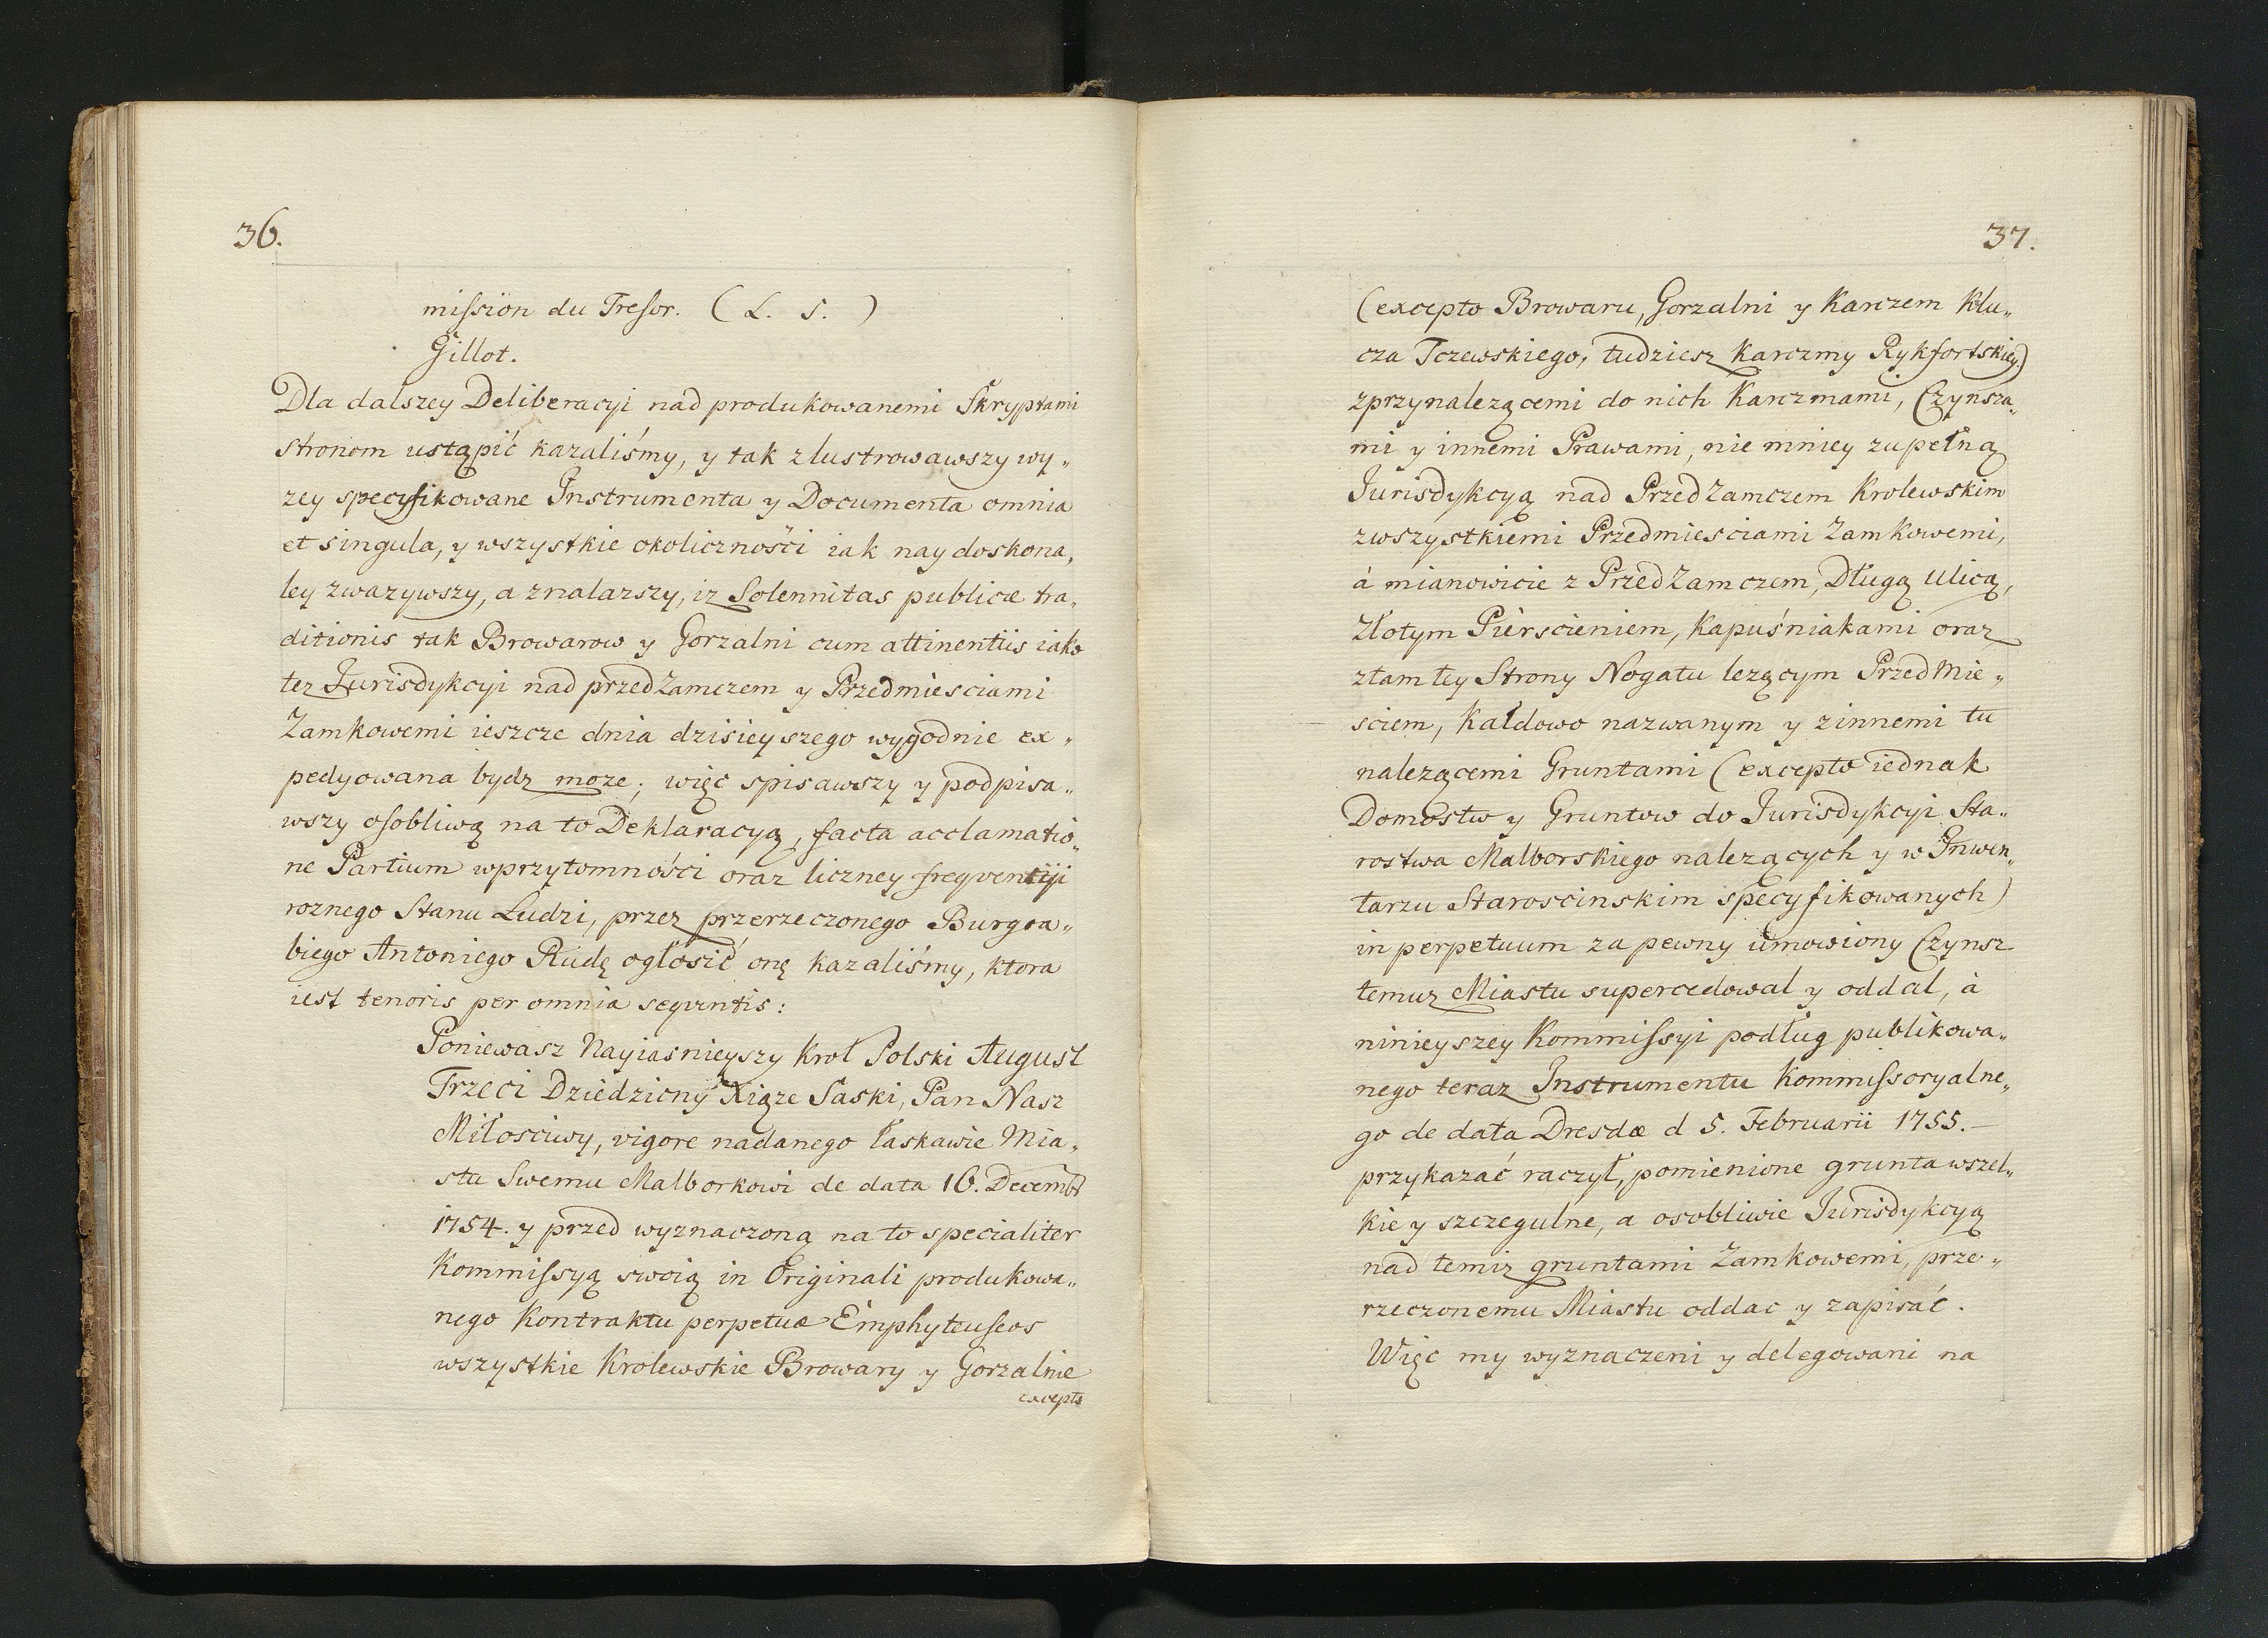 36.
mission du Tresor. ( L. S. )
Gillot.
Dla dalszey Deliberacyi nad produkowanemi Skryptami
stronom ustąpić kazaliśmy, y tak zlustrowawszy wy„
zey specyfikowane Instrumenta y Documenta omnia
et singula, y wszystkie okoliczności iak nay doskona„
ley zwazywszy, a znalazszy, iz Solennitas publicæ tra„
ditionis tak Browarow y Gorzalni cum attinentiis iako
tez Jurisdykcyi nad przedzamczem y Przedmiesciami
Zamkowemi ieszcze dnia dzisieyszego wygodnie ex„
pedyowana bydz moze; więc spisawszy y podpisa„
wszy osobliwą na to Deklaracyą, facta acclamatio„
ne Partium wprzytomności oraz liczney freqventyi
roznego Stanu Ludzi, przez przerzeczonego Burgra„
biego Antoniego Rudę ogłosić onę kazaliśmy, ktora
iest tenoris per omnia seqventis:
Poniewasz Nayiasnieyszy Krol Polski August
Trzeci Dziedziczny Xiąze Saski, Pan Nasz
Miłosciwy, vigore nadanego łaskawie Mia„
stu Swemu Malborkowi de data 16. Decembr
1754. y przed wyznaczoną na to specialiter
Kommissyą swoią in Originali produkowa„
nego Kontraktu perpetuæ Emphyteuseos
wszystkie Krolewskie Browary y Gorzalnie
excepto
37.
(excepto Browaru, Gorzalni y Karczem Klu„
cza Tczewskiego, tudziesz Karczmy Rykfortskiey)
zprzynalezącemi do nich Karczmami, Czynsza„
mi y innemi Prawami, nie mniey zupełną
Jurisdykcyą nad Przedzamczem Krolewskim
zwszystkiemi Przedmiesciami Zamkowemi,
à mianowicie z Przedzamczem, Długą Ulicą,
Złotym Pierscieniem, Kapuśniakami oraz
ztamtey Strony Nogatu lezącym PrzedMie„
sciem, Kałdowo nazwanym y zinnemi tu
nalezącemi Gruntami (excepto iednak
Domostw y Gruntow do Jurisdykcyi Sta„
rostwa Malborskiego nalezących y w Inwen„
tarzu Staroscinskim specyfikowanych)
in perpetuum za pewny umowiony Czynsz
temuz Miastu supercedowal y oddal, à
ninieyszey Kommissyi podług publikowa„
nego teraz Instrumentu Kommissoryalne„
go de data Dresdæ d 5. Februarii 1755.—
przykazać raczył, pomienione grunta wszel„
kie y szczegulne, a osobliwie Jurisdykcyą
nad temiz gruntami Zamkowemi, prze„
rzeczonemu Miastu oddac y zapisać.
Więc my wyznaczeni y delegowani na